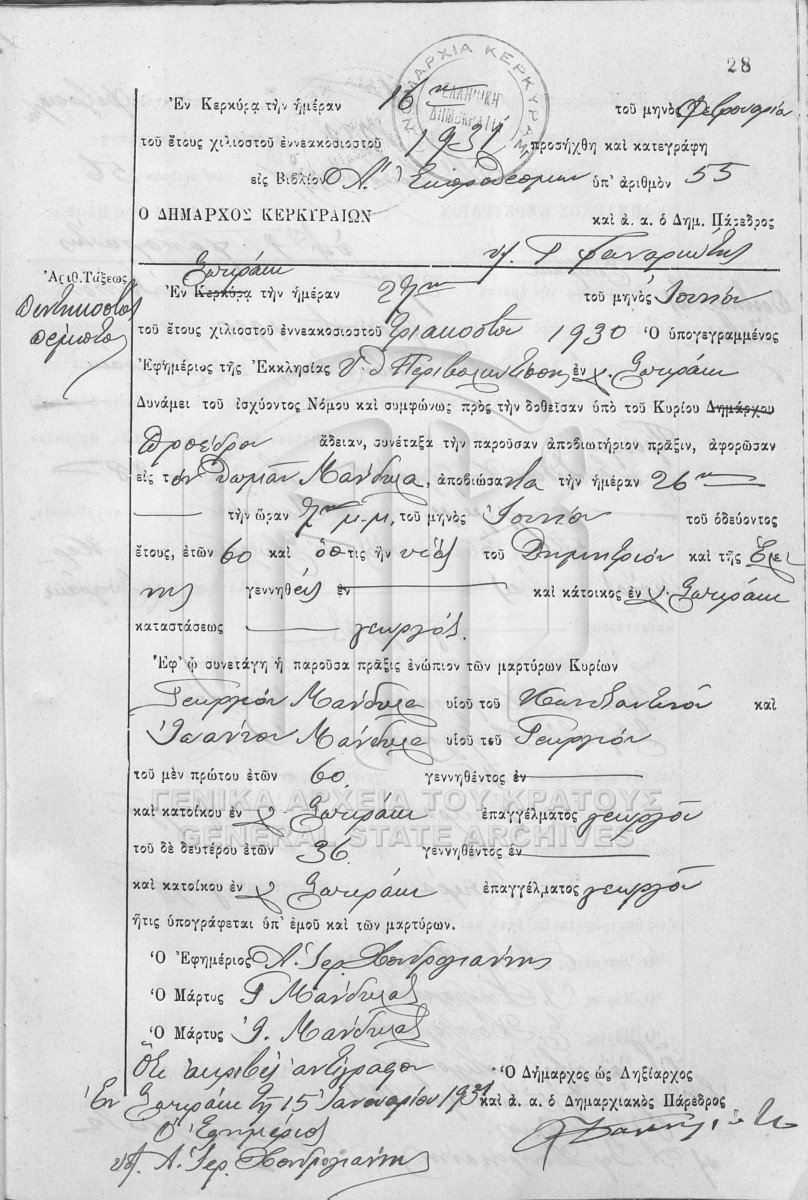 28
ΝΟΜΑΡΧΙΑ ΚΕΡΚΥΡΑΣ
ΕΛΛΗΝΙΚΗ ΔΗΜΟΚΡΑΤΙΑ
Ἐν Κερκύρᾳ τὴν ἡμέραν 16ην τοῦ μηνὸς Φεβρουαρίου
τοῦ ἔτους χιλιοστοῦ ἐννεακοσιοστοῦ 1931 προσήχθη καὶ κατεγράφη
εἰς Βιβλίον Α. Ἐκπροθέσμων ὑπ' ἀριθμὸν 55
Ο ΔΗΜΑΡΧΟΣ ΚΕΡΚΥΡΑΙΩΝ καὶ ἀ. α. ὁ Δημ. Πάρεδρος
Ἀριθ. Τάξεως
πεντηκοστὸς
πέμπτος
Σωκράκι
Ἐν Κερκύρᾳ τὴν ἡμέραν 27ην τοῦ μηνὸς Ἰουνίου
τοῦ ἔτους χιλιοστοῦ ἐννεακοσιοστοῦ τριακοστοῦ 1930 Ὁ ὑπογεγραμμένος
Ἐφημέριος τῆς Ἐκκλησίας Υ. Θ. Περιβολιωτίσσης ἐν χ. Σωκράκι
Δυνάμει τοῦ ἰσχύοντος Νόμου καὶ συμφώνως πρὸς τὴν δοθεῖσαν ὑπὸ τοῦ Κυρίου Δημάρχου
προέδρου ἄδειαν, συνέταξα τὴν παροῦσαν ἀποβιωτήριον πρᾶξιν, ἀφορῶσαν
εἰς τὸν Θωμᾶν Μάνδυλα, ἀποβιώσαντα τὴν ἡμέραν 26ην
τὴν ὥραν 7ην μ.μ. τοῦ μηνὸς Ἰουνίου τοῦ ὁδεύοντος
ἔτους, ἐτῶν 60 καὶ ὅστις ἦν υἱὸς τοῦ Δημητρίου καὶ τῆς Ἑλέ
νης γεννηθεὶς ἐν καὶ κάτοικος ἐν χ. Σωκράκι
καταστάσεως γεωργός.
Ἐφ' ᾧ συνετάγη ἡ παροῦσα πρᾶξις ἐνώπιον τῶν μαρτύρων Κυρίων
Γεωργίου Μάνδυλα υἱοῦ τοῦ Κωνσταντίνου καὶ
Ἰωάννου Μάνδυλα υἱοῦ τοῦ Γεωργίου
τοῦ μὲν πρώτου ἐτῶν 60. γεννηθέντος ἐν
καὶ κατοίκου ἐν χ. Σωκράκι ἐπαγγέλματος γεωργοῦ
τοῦ δὲ δευτέρου ἐτῶν 36. γεννηθέντος ἐν
καὶ κατοίκου ἐν χ. Σωκράκι ἐπαγγέλματος γεωργοῦ
ἥτις ὑπογράφεται ὑπ' ἐμοῦ καὶ τῶν μαρτύρων.
Ὁ Ἐφημέριος Α. Ἱερ. Χονδρογιάννης
Ὁ Μάρτυς Γ. Μάνδυλας
Ὁ Μάρτυς Ἰ. Μάνδυλας
Ὅτι ἀκριβὲς ἀντίγραφον
Ἐν Σωκράκι τῇ 15 Ἰανουαρίου 1931
Ὁ Ἐφημέριος
υπ. Α. Ἱερ. Χονδρογιάννης
Ὁ Δήμαρχος ὡς Ληξίαρχος
καὶ ἀ. α. ὁ Δημαρχιακὸς Πάρεδρος
ΓΕΝΙΚΑ ΑΡΧΕΙΑ ΤΟΥ ΚΡΑΤΟΥΣ
GENERAL STATE ARCHIVES